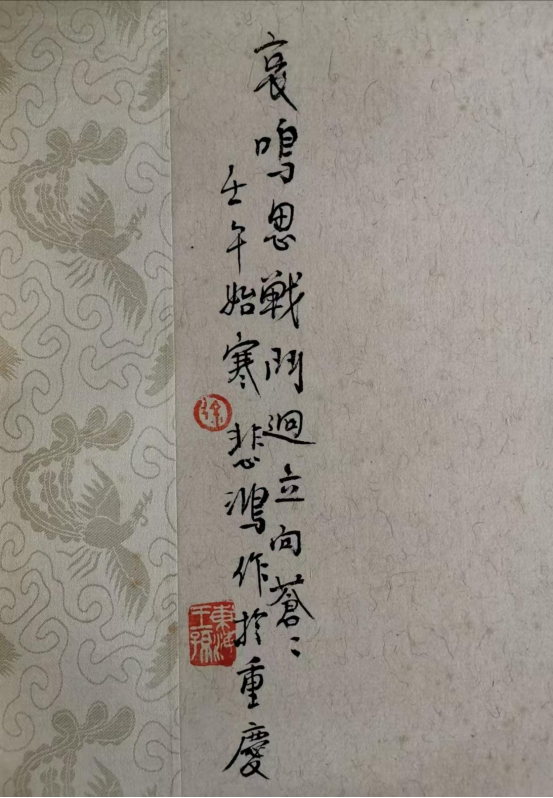 哀鳴思戰鬥迥立向蒼〻
壬午始寒悲鴻作於重慶
徐
東海王孫